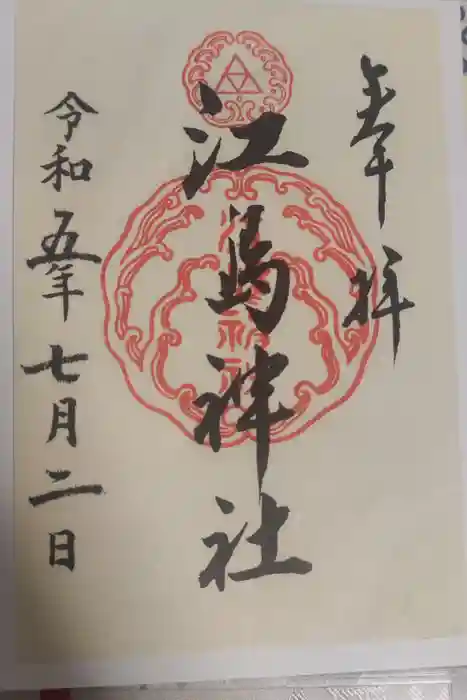 奉拝
江島神社
令和五年七月二日